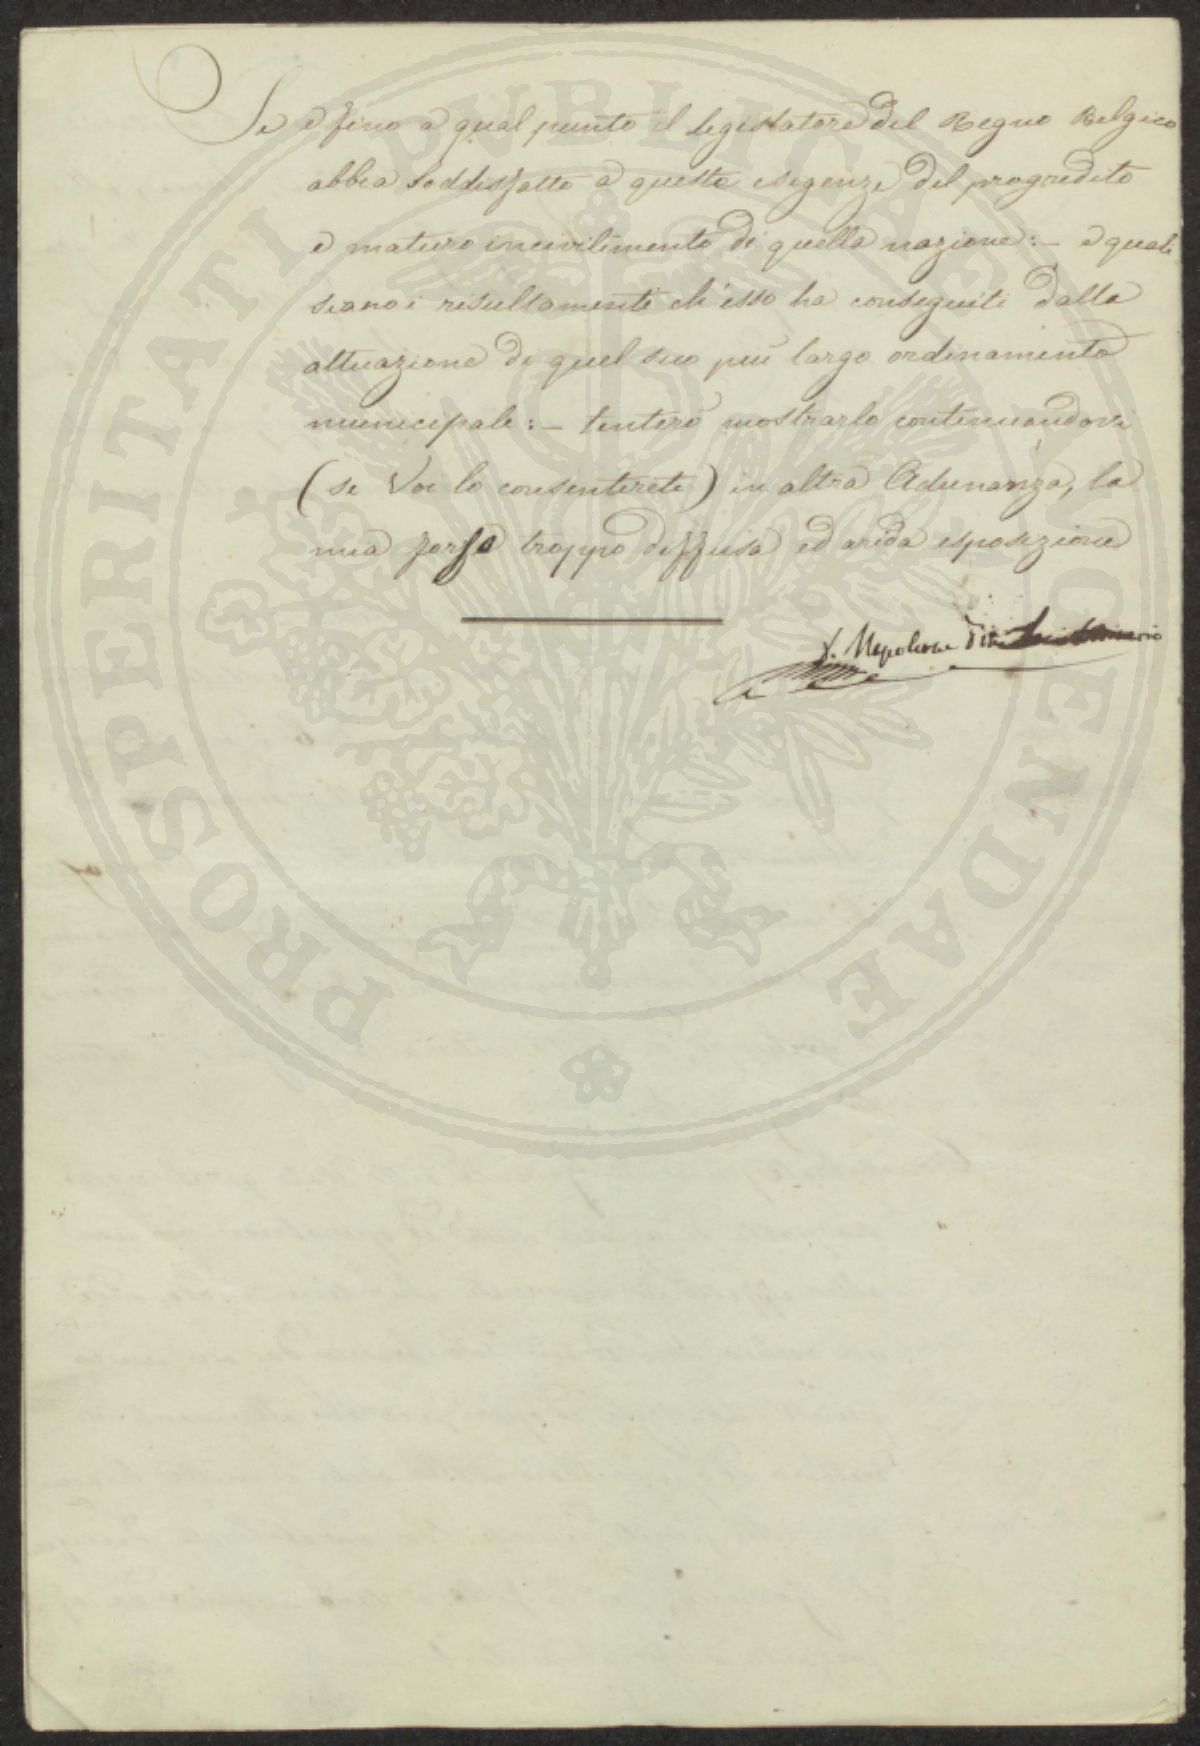 Se e fino a qual punto il legislatore del Regno Belgico
abbia soddisfatto a queste esigenze del progredito
e maturo incivilimento di quella nazione: – e quali
siano i risultamenti ch'esso ha conseguiti dalla
attuazione di quel suo più largo ordinamento
municipale: – tenterò mostrarlo continuandovi
(se Voi lo consentirete) in altra Adunanza, la
mia forse troppo diffusa ed arida esposizione
Napoleone
PROSPERITATI PVBLICAE AVGENDAE